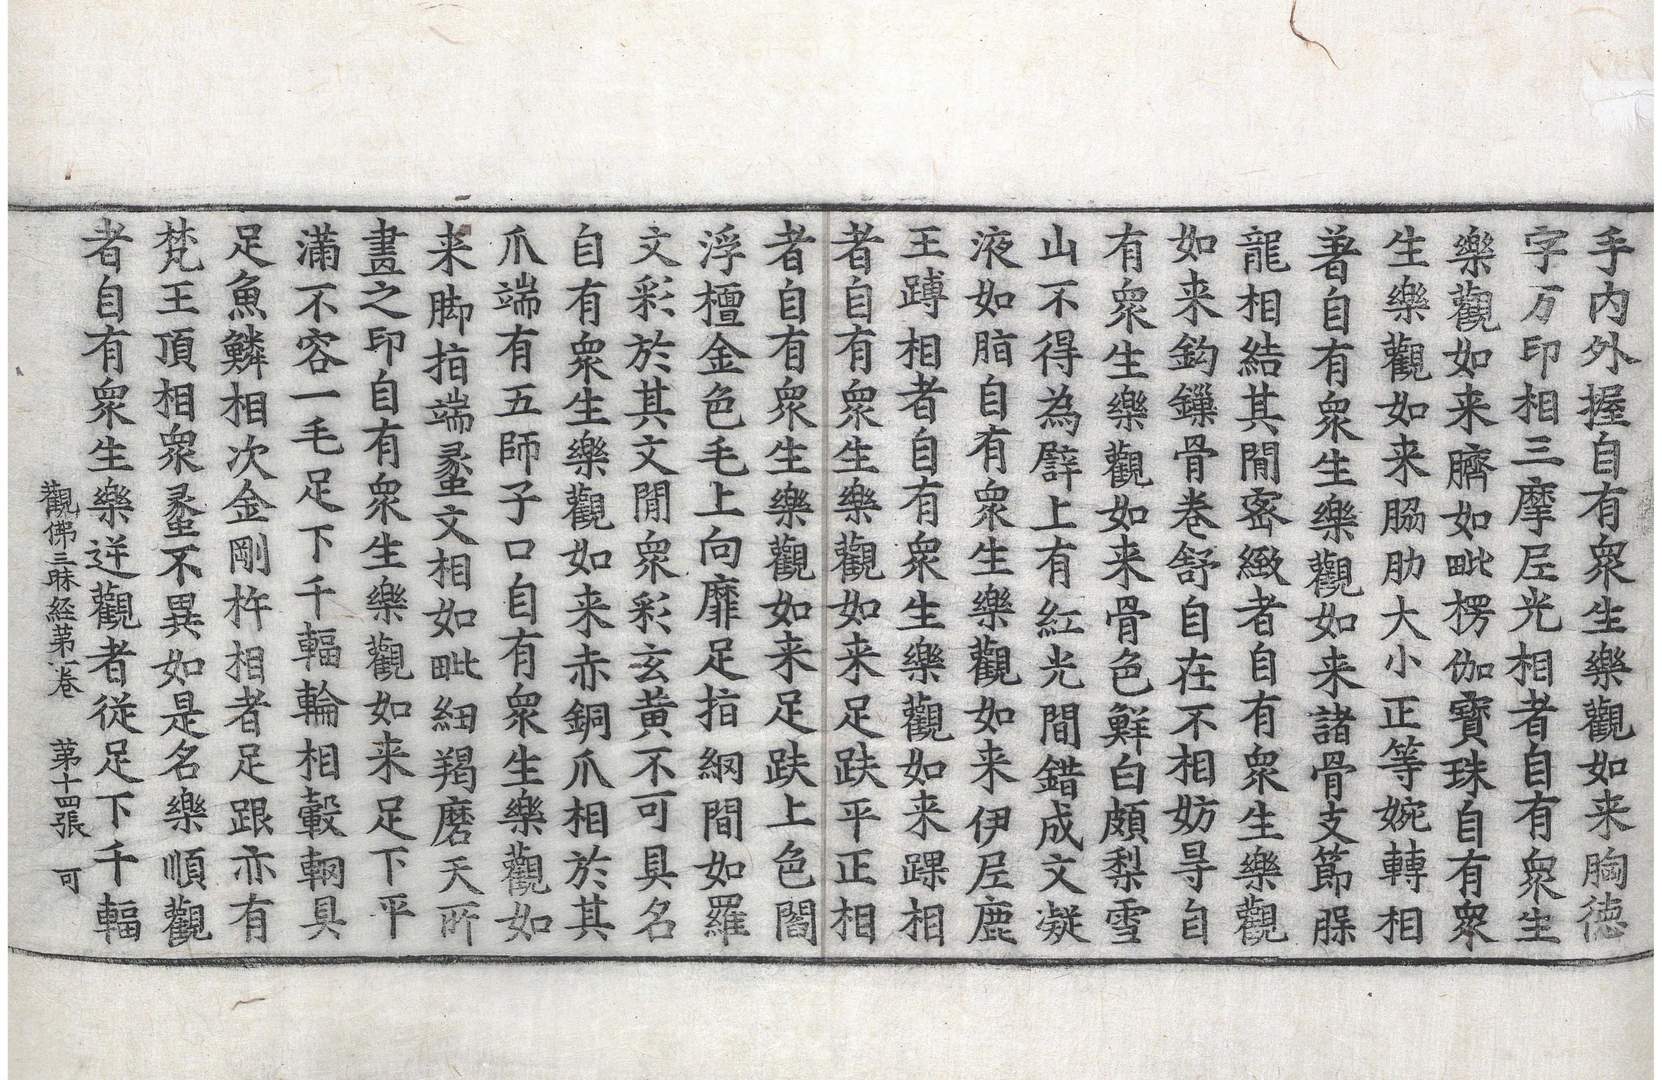 手内外握自有衆生樂觀如来胸德
字万印相三摩尼光相者自有衆生
樂觀如来臍如毗楞伽寶珠自有衆
生樂觀如来脇肋大小正等婉轉相
著自有衆生樂觀如来諸骨支節䐗
龍相結其閒密緻者自有衆生樂觀
如来鈎鏁骨卷舒自在不相妨㝵自
有衆生樂觀如来骨色鮮白頗梨雪
山不得為譬上有紅光間錯成文凝
液如脂自有衆生樂觀如来伊尼鹿
王蹲相者自有衆生樂觀如来踝相
者自有衆生樂觀如来足趺平正相
者自有衆生樂觀如来足趺上色閻
浮檀金色毛上向靡足指網間如羅
文彩於其文閒衆彩玄黄不可具名
自有衆生樂觀如来赤銅爪相於其
爪端有五師子口自有衆生樂觀如
来脚指端蠡文相如毗紐羯磨天所
畫之印自有衆生樂觀如来足下平
滿不容一毛足下千輻輪相轂輞具
足魚鱗相次金剛杵相者足跟亦有
梵王頂相衆蠡不異如是名樂順觀
者自有衆生樂逆觀者從足下千輻
觀佛三昧経第一卷 第十四張 可